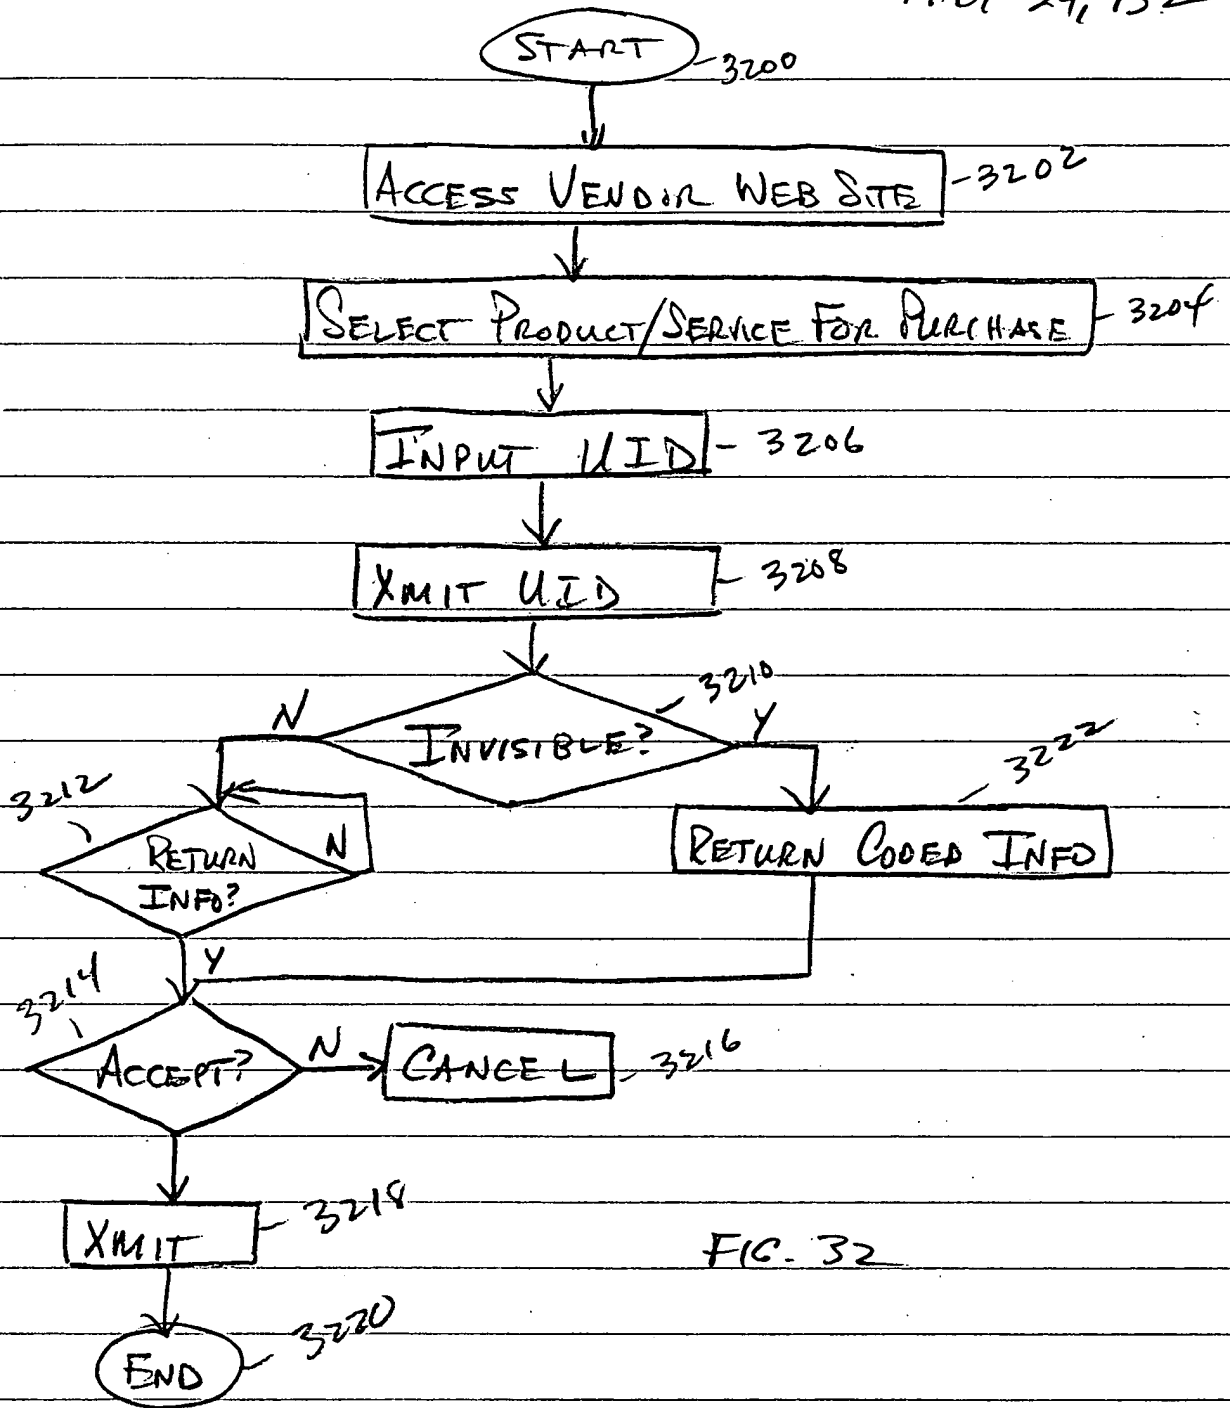 START
3200
ACCESS VENDOR WEB SITE
3202
SELECT PRODUCT/SERVICE FOR PURCHASE
3204
INPUT UID
3206
XMIT UID
3208
INVISIBLE?
3210
N
Y
3212
3222
RETURN
INFO?
N
RETURN CODED INFO
Y
3214
ACCEPT?
N
CANCEL
3216
XMIT
3218
FIG. 32
END
3220